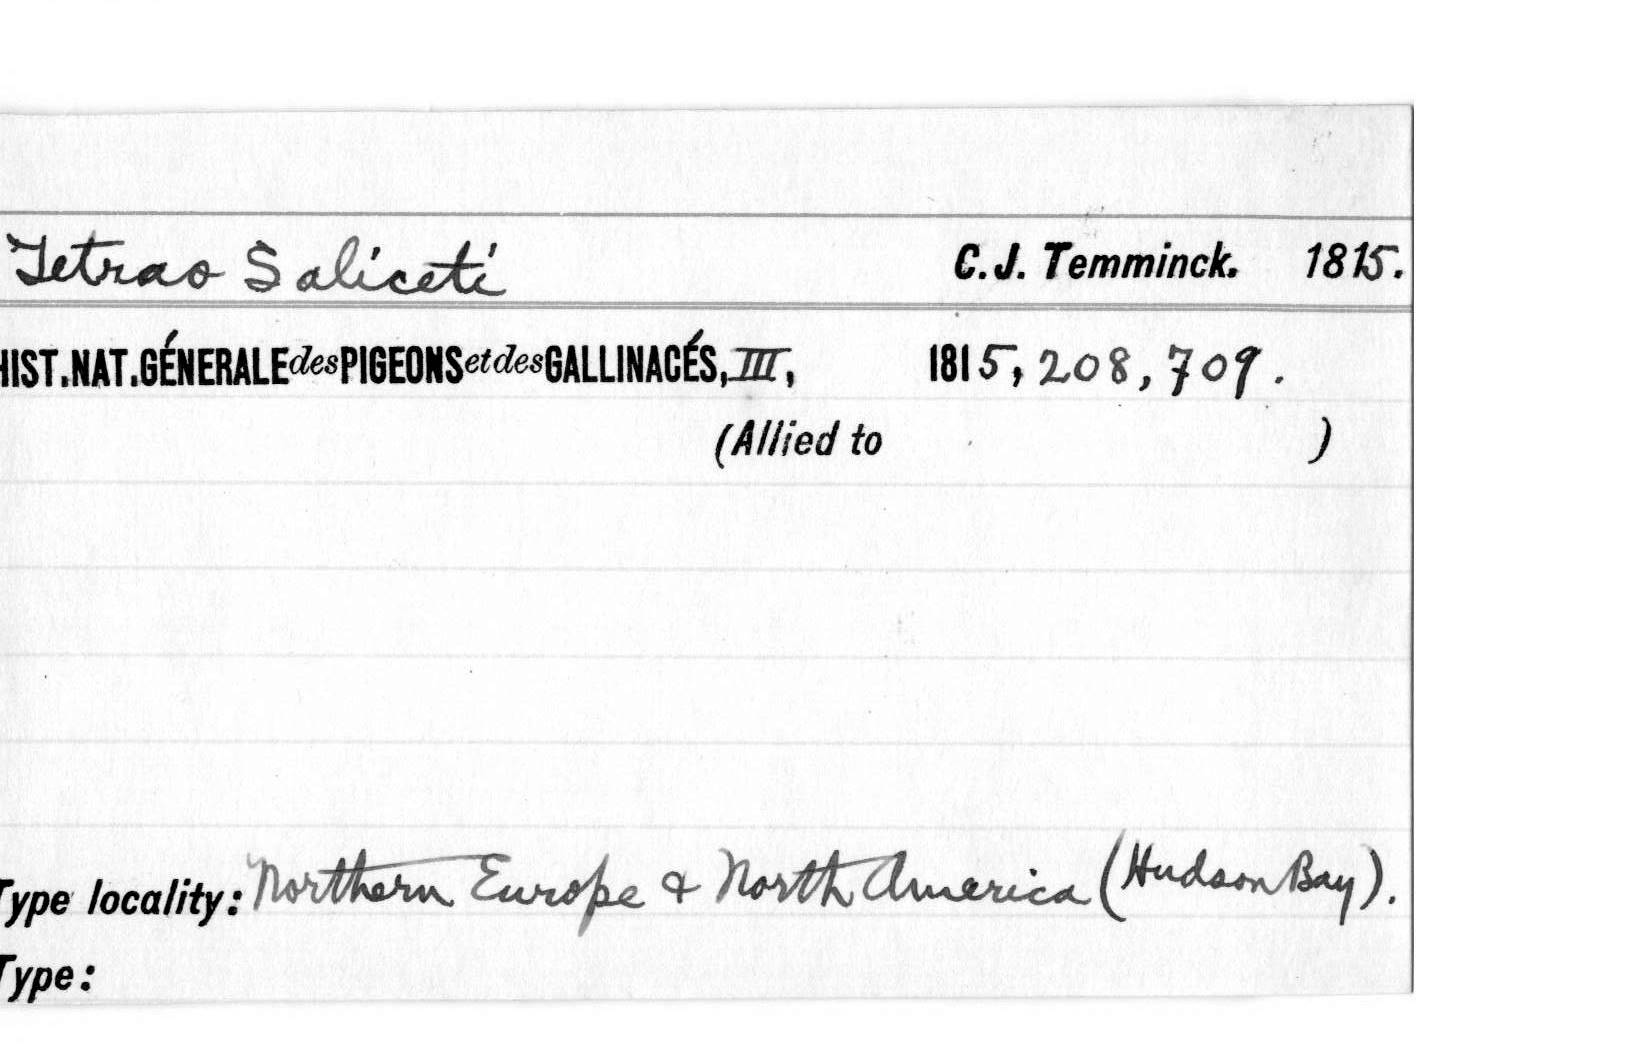 Tetrao Saliceti C. J. Temminck. 1815.
HIST. NAT. GÉNERALE des PIGEONS et des GALLINACÉS, III, 1815, 208, 709.
(Allied to )
Type locality: Northern Europe & North America (Hudson Bay).
Type: